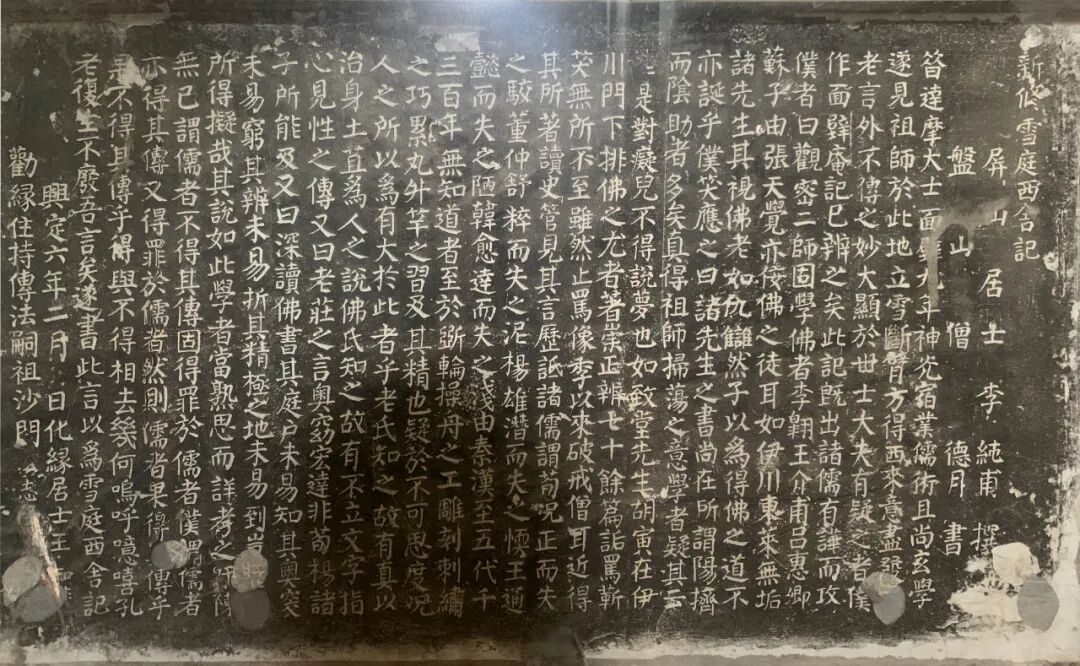 新修雪庭西舍記
屏山居士李純甫撰
盤山僧德月書
昔達摩大士面壁九年神光宿業儒術且尚玄學
遂見祖師於此地立雪斷臂方得西來意盡發
老言外不傳之妙大顯於世士大夫有疑之者僕
作面壁庵記已辨之矣此記既出諸儒有譁而攻
僕者曰觀密二師固學佛者李翱王介甫呂惠卿
蘇子由張天覺亦佞佛之徒耳如伊川東萊無垢
諸先生其視佛老如仇讎然子以為得佛之道不
亦誕乎僕笑應之曰諸先生之書尚在所謂陽擠
而陰助者多矣真得祖師掃蕩之意學者疑其云
云是對癡兒不得說夢也如致堂先生胡寅在伊
川門下排佛之尤者著崇正辨七十餘篇詬罵斬
芟無所不至雖然止罵像季以來破戒僧耳近得
其所著讀史管見其言歷詆諸儒謂荀況正而失
之駮董仲舒粹而失之泥楊雄潛而失之懦王通
懿而失之陋韓愈達而失之淺由秦漢至五代千
三百年無知道者至於斲輪操舟之工雕刻刺繡
之巧累丸舛竿之習及其精也疑於不可思度況
人之所以為有大於此者乎老氏知之故有真以
治身土苴為人之說佛氏知之故有不立文字指
心見性之傳又曰老莊之言奧窈宏達非荀楊諸
子所能及又曰深讀佛書其庭户未易知其奧突
未易窮其辨未易折其精極之地未易到豈
所得擬哉其說如此學者當熟思而詳考之
無已謂儒者不得其傳固得罪於儒者僕謂儒者
亦得其傳又得罪於儒者然則儒者果得傳乎
果不得其傳乎得與不得相去幾何嗚呼噫嘻孔
老復生不廢吾言矣遂書此言以為雪庭西舍記
興定六年二月日化緣居士王
勸緣住持傳法嗣祖沙門志